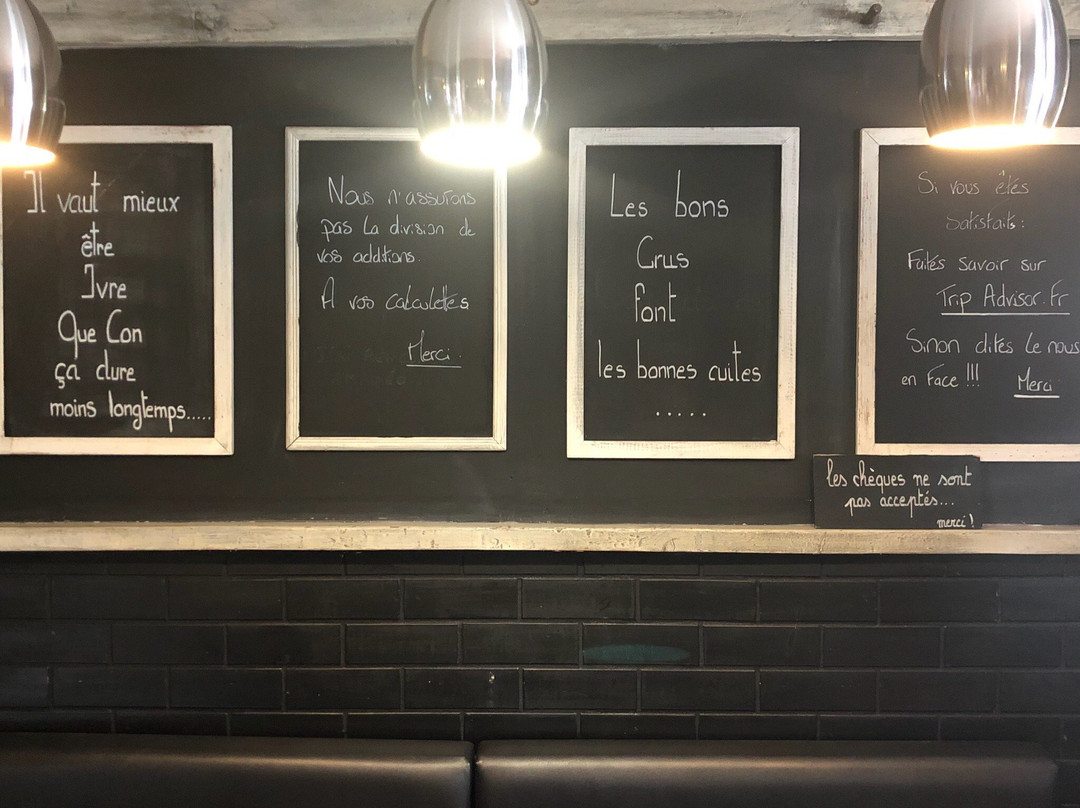 Il vaut mieux
être
Ivre
Que Con
ça dure
moins longtemps.....
Nous n'assurons
pas la division de
vos additions.
A vos calculettes
Merci.
Les bons
Crus
font
les bonnes cuites
.....
Si vous êtes
satisfaits:
Faites savoir sur
Trip Advisor.Fr
Sinon dites le nous
en Face !!! Merci
les chèques ne sont
pas acceptés...
merci!